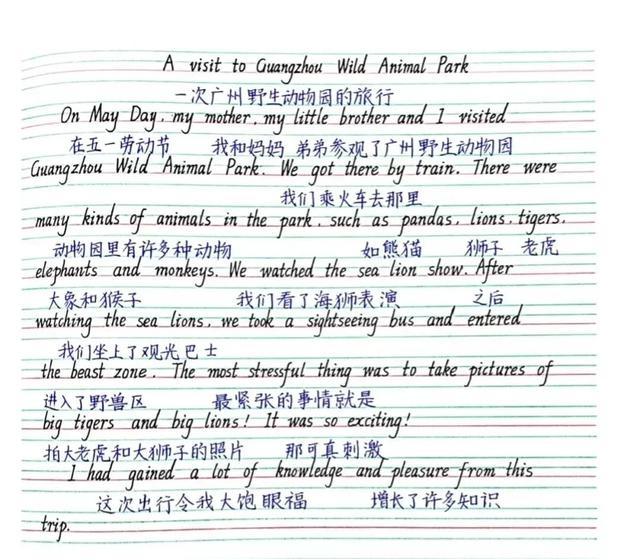 A visit to Guangzhou Wild Animal Park
一次广州野生动物园的旅行
On May Day, my mother, my little brother and I visited
在五一劳动节 我和妈妈 弟弟参观了广州野生动物园
Guangzhou Wild Animal Park. We got there by train. There were
我们乘火车去那里
many kinds of animals in the park, such as pandas, lions, tigers,
动物园里有许多种动物 如熊猫 狮子 老虎
elephants and monkeys. We watched the sea lion show. After
大象和猴子 我们看了海狮表演 之后
watching the sea lions, we took a sightseeing bus and entered
我们坐上了观光巴士
the beast zone. The most stressful thing was to take pictures of
进入了野兽区 最紧张的事情就是
big tigers and big lions! It was so exciting!
拍大老虎和大狮子的照片 那可真刺激
I had gained a lot of knowledge and pleasure from this
这次出行令我大饱眼福 增长了许多知识
trip.